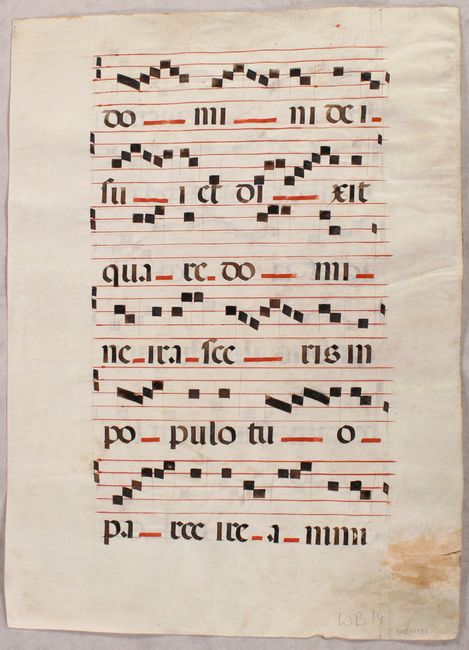 do mi ni dei
su i et di xit
qua re do mi
ne ira sce ris in
po pulo tu o
pa rce ire a nimi
WB 14